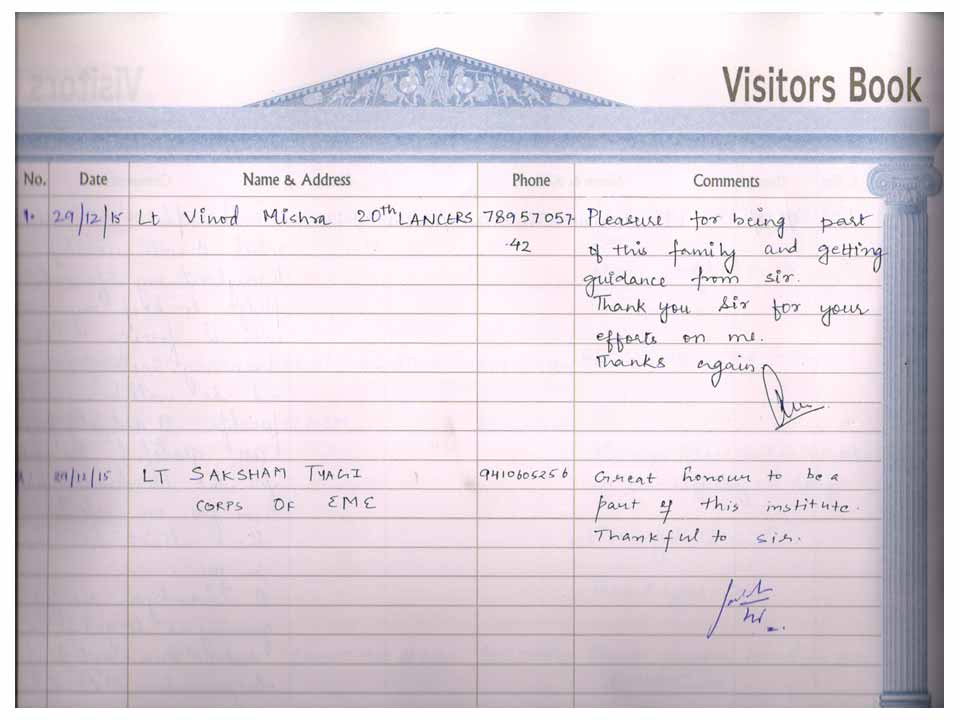 Visitors Book
No. Date Name & Address Phone Comments
1. 29/12/15 Lt Vinod Mishra 20th LANCERS 78957057 Pleasure for being part
42 of this family and getting
guidance from sir.
Thank you Sir for your
efforts on me.
Thanks again
29/12/15 LT SAKSHAM TYAGI 9410605256 Great honour to be a
CORPS OF EME part of this institute.
Thankful to sir.